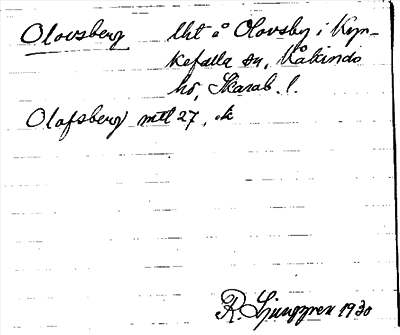 Olovsberg lht å Olovsby i Kyr-
kefalla sn, Kåkinds
hd, Skarab. l.
Olofsberg mtl 27, ek
R. Ljunggren 1930